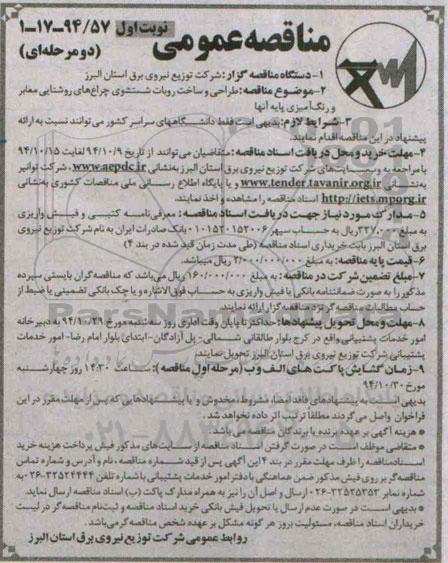 مناقصه عمومی
نوبت اول ۹۴/۵۷-۱۷-۱
(دو مرحله‌ای)
۱-دستگاه مناقصه گزار: شرکت توزیع نیروی برق استان البرز
۲-موضوع مناقصه: طراحی و ساخت روبات شستشوی چراغ‌های روشنایی معابر
و رنگ‌آمیزی پایه آنها
۳-شرایط لازم: بدیهی است فقط دانشگاههای سراسر کشور می‌توانند نسبت به ارائه
پیشنهاد در این مناقصه اقدام نمایند.
۴-مهلت خرید و محل دریافت اسناد مناقصه: متقاضیان می‌توانند از تاریخ ۹۴/۱۰/۹ لغایت ۹۴/۱۰/۱۵
با مراجعه به وب‌سایت‌های شرکت توزیع نیروی برق استان البرز به‌نشانی www.aepdc.ir، شرکت توانیر
به‌نشانی www.tender.tavanir.org.ir و یا پایگاه اطلاع رسانی ملی مناقصات کشوری به‌نشانی
http://iets.mporg.ir اسناد مناقصه را مشاهده و اخذ نمایند.
۵-مدارک مورد نیاز جهت دریافت اسناد مناقصه: معرفی‌نامه کتبی و فیش واریزی
به مبلغ ۳۲۷/۰۰۰ ریال به حساب سپهر ۰۱۰۱۵۲۰۱۵۲۰۰۶ بانک صادرات ایران به نام شرکت توزیع نیروی
برق استان البرز بابت خریداری اسناد مناقصه (طی مدت زمان قید شده در بند ۴)
۶-قیمت پایه مناقصه: به مبلغ ۳/۰۰۰/۰۰۰/۰۰۰ ریال میباشد.
۷-مبلغ تضمین شرکت در مناقصه: به مبلغ ۱۶۰/۰۰۰/۰۰۰ ریال می‌باشد که مناقصه‌گران بایستی سپرده
مذکور را به صورت ضمانتنامه بانکی یا فیش واریزی به حساب فوق‌الاشاره و یا چک بانکی تضمینی یا ضبط از
حساب مطالبات مناقصه‌گر نزد مناقصه‌گزار ارائه نمایند.
۸-مهلت و محل تحویل پیشنهادها: حداکثر تا پایان وقت اداری روز سه‌شنبه مورخ ۹۴/۱۰/۲۹ به دبیرخانه
امور خدمات پشتیبانی واقع در کرج بلوار طالقانی شمالی- پل آزادگان- ابتدای بلوار امام رضا- امور خدمات
پشتیبانی شرکت توزیع نیروی برق استان البرز تحویل نمایند.
۹-زمان گشایش پاکت های الف و ب (مرحله اول مناقصه): ساعت ۱۴:۳۰ روز چهارشنبه
مورخ ۹۴/۱۰/۳۰
بدیهی است به پیشنهادهای فاقد امضا، مشروط، مخدوش و یا پیشنهادهایی که پس از مهلت مقرر در این
فراخوان واصل می‌گردند مطلقا ترتیب اثر داده نخواهد شد.
* هزینه آگهی بر عهده برنده یا برندگان مناقصه می‌باشد.
* متقاضی موظف است در صورت گرفتن اسناد مناقصه از سایت‌های مذکور فیش پرداخت هزینه خرید
اسناد مناقصه را ظرف مهلت مقرر در بند ۴ این آگهی پس از قید شماره مناقصه، نام و آدرس و شماره تماس
مناقصه‌گر بر روی فیش مذکور ضمن هماهنگی با دفتر امور خدمات پشتیبانی با شماره تلفن ۳۲۵۲۴۴۴۴-۰۲۶ به
شماره نمابر ۳۲۵۲۵۲۵۲-۰۲۶ ارسال و اصل آن را نیز به همراه مدارک پاکت (ب) اسناد مناقصه ارسال نماید.
* بدیهی است در صورت عدم ارسال یا تحویل فیش بانکی خرید اسناد مناقصه و ثبت نام مناقصه‌گر در لیست
خریداران اسناد مناقصه، مسئولیت بروز هر گونه مشکل بر عهده شخص مناقصه‌گر می‌باشد.
روابط عمومی شرکت توزیع نیروی برق استان البرز